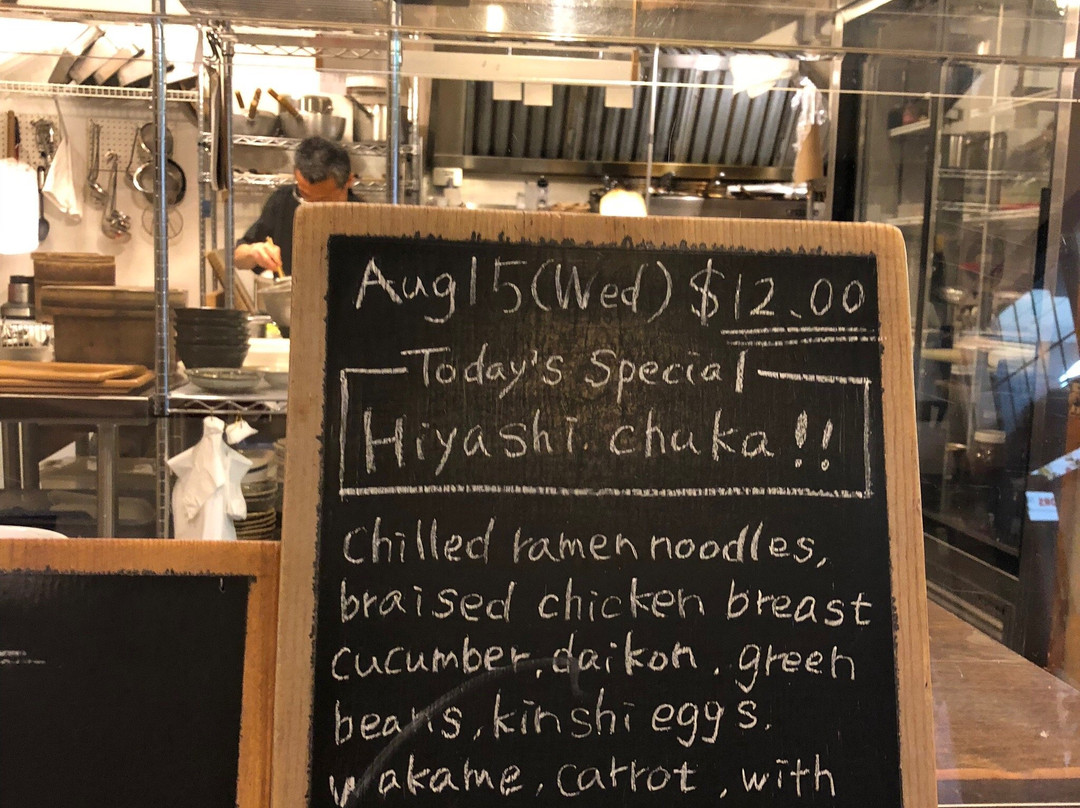 Aug 15 (Wed) $12.00
Today's Special
Hiyashi chuka!!
Chilled ramen noodles,
braised chicken breast
cucumber, daikon, green
beans, kinshi eggs,
wakame, carrot, with